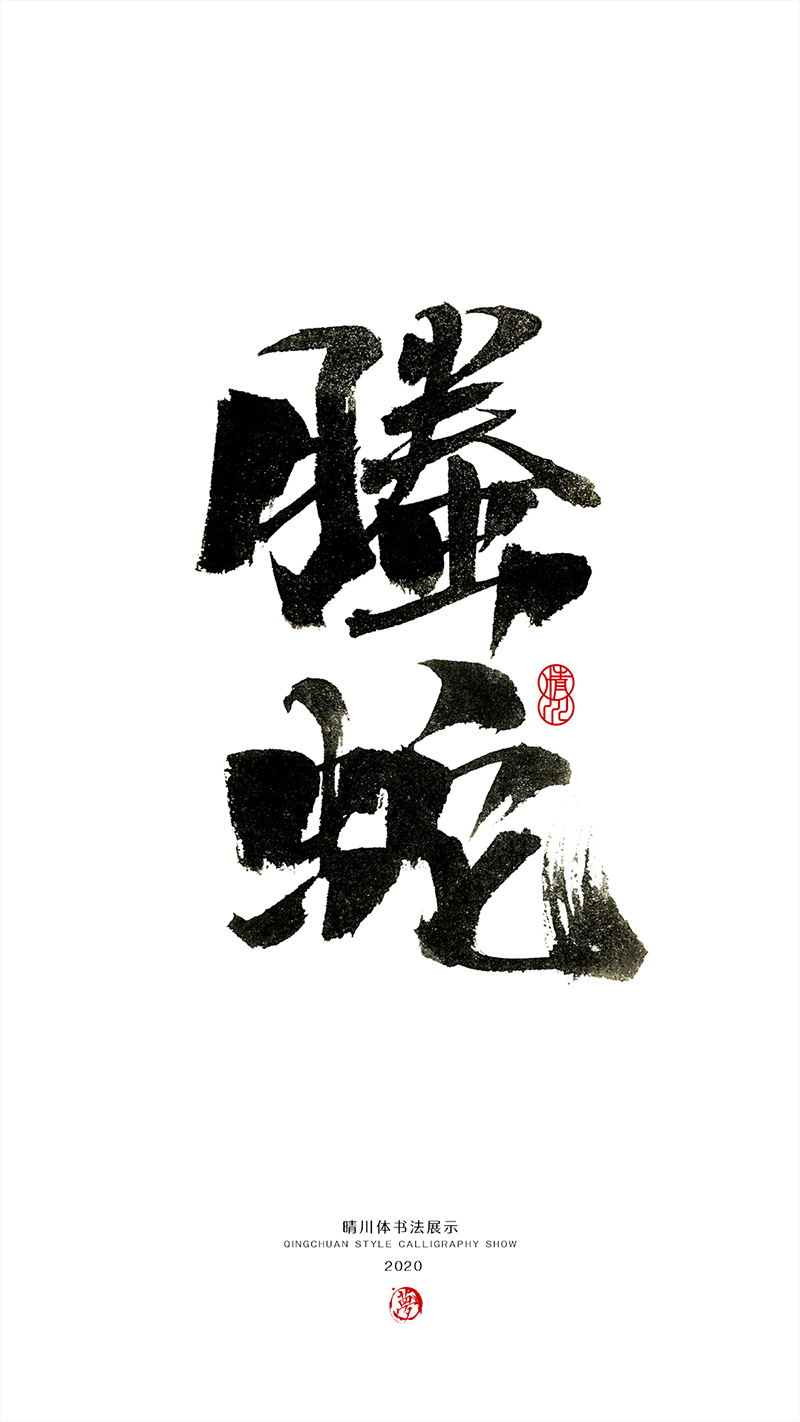 螣
蛇
晴川
晴川体书法展示
QINGCHUAN STYLE CALLIGRAPHY SHOW
2020
夢